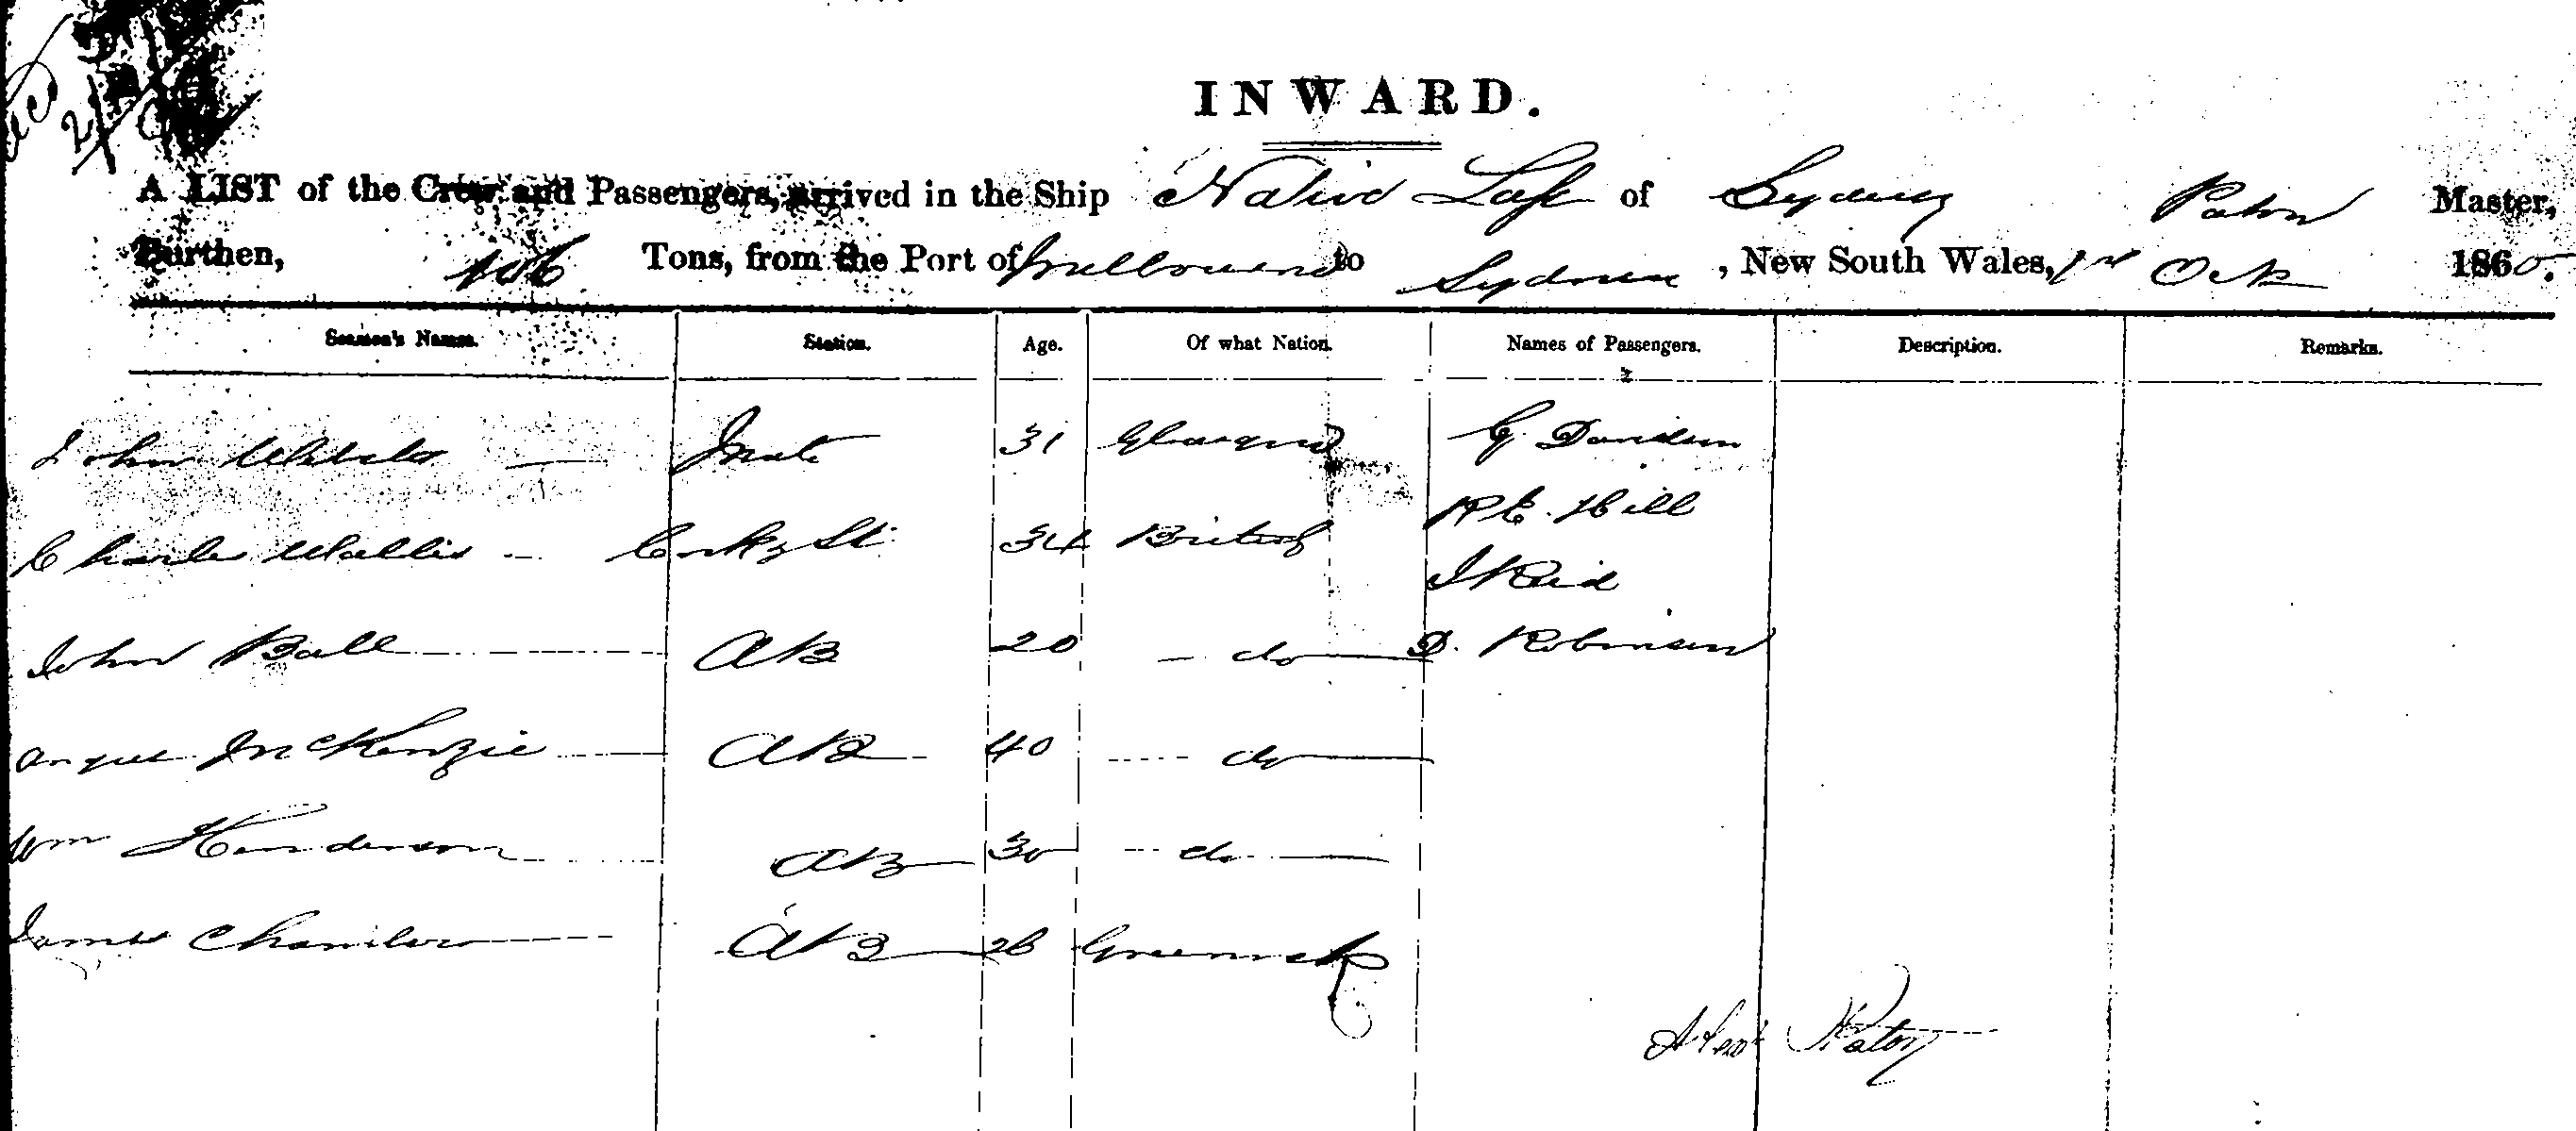 INWARD.
A LIST of the Crew and Passengers, arrived in the Ship Native Lass of Sydney Paton Master,
Burthen, 106 Tons, from the Port of Melbourne to Sydney, New South Wales, 1st Oct 1860.
Seamen's Names. Station. Age. Of what Nation. Names of Passengers. Description. Remarks.
John Mate 31 Glasgow G. Davidson
R E. Hill
Charles Wallis Cook & St. 34 British
J Reid
John Ball AB 20 do D. Robinson
Angus McKenzie AB 40 do
Wm Henderson AB 30 do
James AB 26 Greenock
Alexr Paton